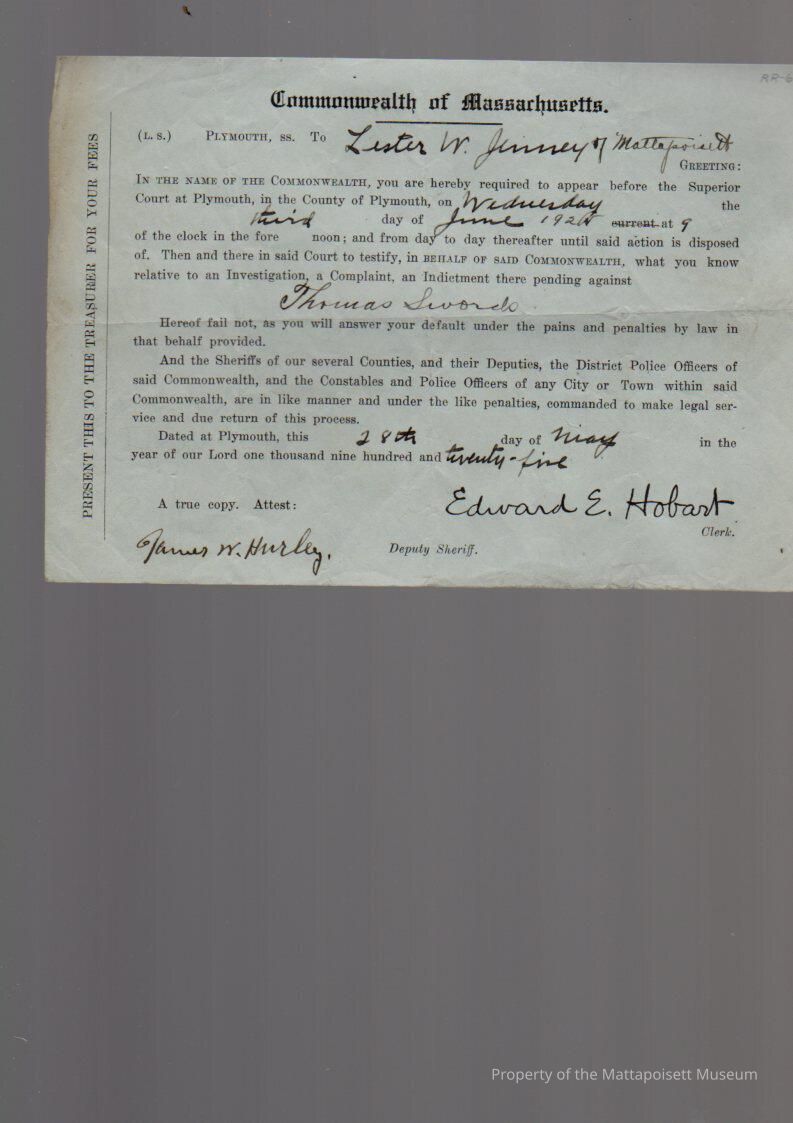 RR-6
Commonwealth of Massachusetts.
(L. S.) PLYMOUTH, ss. To Lester W. Jenney of Mattapoisett
GREETING:
IN THE NAME OF THE COMMONWEALTH, you are hereby required to appear before the Superior
Court at Plymouth, in the County of Plymouth, on Wednesday the
third day of June 1925 current at 9
of the clock in the fore noon; and from day to day thereafter until said action is disposed
of. Then and there in said Court to testify, in BEHALF OF SAID COMMONWEALTH, what you know
relative to an Investigation, a Complaint, an Indictment there pending against
Thomas Swords
Hereof fail not, as you will answer your default under the pains and penalties by law in
that behalf provided.
And the Sheriffs of our several Counties, and their Deputies, the District Police Officers of
said Commonwealth, and the Constables and Police Officers of any City or Town within said
Commonwealth, are in like manner and under the like penalties, commanded to make legal ser-
vice and due return of this process.
Dated at Plymouth, this 28th day of May in the
year of our Lord one thousand nine hundred and twenty-five
A true copy. Attest: Edward E. Hobart
Clerk.
James W. Hurley, Deputy Sheriff.
PRESENT THIS TO THE TREASURER FOR YOUR FEES
Property of the Mattapoisett Museum